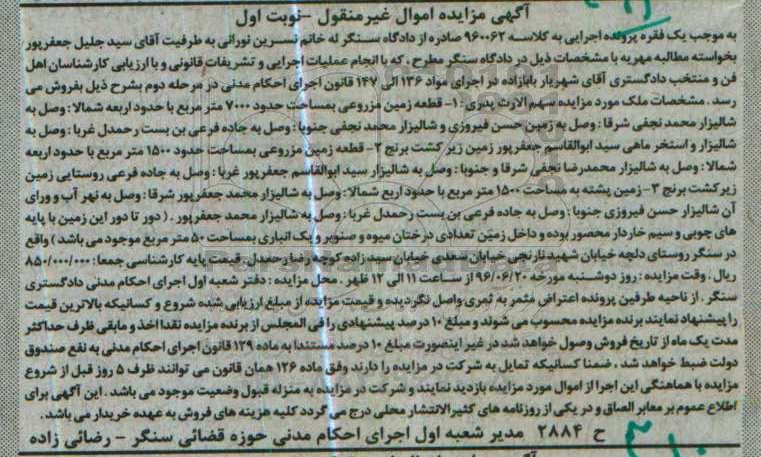 آگهی مزایده اموال غیرمنقول -نوبت اول
به موجب یک فقره پرونده اجرایی به کلاسه ۹۶۰۰۶۲ صادره از دادگاه سنگر له خانم نسرین نورانی به طرفیت آقای سید جلیل جعفرپور
بخواسته مطالبه مهریه با مشخصات ذیل در دادگاه سنگر مطرح ، که با انجام عملیات اجرایی و تشریفات قانونی و با ارزیابی کارشناسان اهل
فن و منتخب دادگستری آقای شهریار بابازاده در اجرای مواد ۱۳۶ الی ۱۴۷ قانون اجرای احکام مدنی در مرحله دوم بشرح ذیل بفروش می
رسد . مشخصات ملک مورد مزایده سهم الارث پدری : ۱- قطعه زمین مزروعی بمساحت حدود ۷۰۰۰ متر مربع با حدود اربعه شمالا : وصل به
شالیزار محمد نجفی شرقا : وصل به زمین حسن فیروزی و شالیزار محمد نجفی جنوبا : وصل به جاده فرعی بن بست رحمدل غربا : وصل به
شالیزار و استخر ماهی سید ابوالقاسم جعفرپور زمین زیر کشت برنج ۲- قطعه زمین مزروعی بمساحت حدود ۱۵۰۰ متر مربع با حدود اربعه
شمالا : وصل به شالیزار محمدرضا نجفی شرقا و جنوبا : وصل به شالیزار سید ابوالقاسم جعفرپور غربا : وصل به جاده فرعی روستایی زمین
زیر کشت برنج ۳- زمین پشته به مساحت ۱۵۰۰ متر مربع با حدود اربع شمالا : وصل به شالیزار محمد جعفرپور شرقا : وصل به نهر آب و ورای
آن شالیزار حسن فیروزی جنوبا : وصل به جاده فرعی بن بست رحمدل غربا : وصل به شالیزار محمد جعفرپور . ( دور تا دور این زمین با پایه
های چوبی و سیم خاردار محصور بوده و داخل زمین تعدادی درختان میوه و صنوبر و یک انباری بمساحت ۵۰ متر مربع موجود می باشد ) واقع
در سنگر روستای دلچه خیابان شهید نارنجی خیابان سعدی خیابان سید زاده کوچه رضا رحمدل. قیمت پایه کارشناسی جمعا : ۸۵۰/۰۰۰/۰۰۰
ریال . وقت مزایده : روز دوشنبه مورخه ۹۶/۰۶/۲۰ از ساعت ۱۱ الی ۱۲ ظهر . محل مزایده : دفتر شعبه اول اجرای احکام مدنی دادگستری
سنگر . از ناحیه طرفین پرونده اعتراض مثمر به ثمری واصل نگردیده و قیمت مزایده از مبلغ ارزیابی شده شروع و کسانیکه بالاترین قیمت
را پیشنهاد نمایند برنده مزایده محسوب می شوند و مبلغ ۱۰ درصد پیشنهادی را فی المجلس از برنده مزایده نقدا اخذ و مابقی ظرف حداکثر
مدت یک ماه از تاریخ فروش وصول خواهد شد در غیر اینصورت مبلغ ۱۰ درصد مستندا به ماده ۱۲۹ قانون اجرای احکام مدنی به نفع صندوق
دولت ضبط خواهد شد . ضمنا کسانیکه تمایل به شرکت در مزایده را دارند وفق ماده ۱۲۶ همان قانون می توانند ظرف ۵ روز قبل از شروع
مزایده با هماهنگی این اجرا از اموال مورد مزایده بازدید نمایند و شرکت در مزایده به منزله قبول وضعیت موجود می باشد . این آگهی برای
اطلاع عموم بر معابر الصاق و در یکی از روزنامه های کثیرالانتشار محلی درج می گردد کلیه هزینه های فروش به عهده خریدار می باشد .
ح ۲۸۸۴ مدیر شعبه اول اجرای احکام مدنی حوزه قضائی سنگر - رضائی زاده